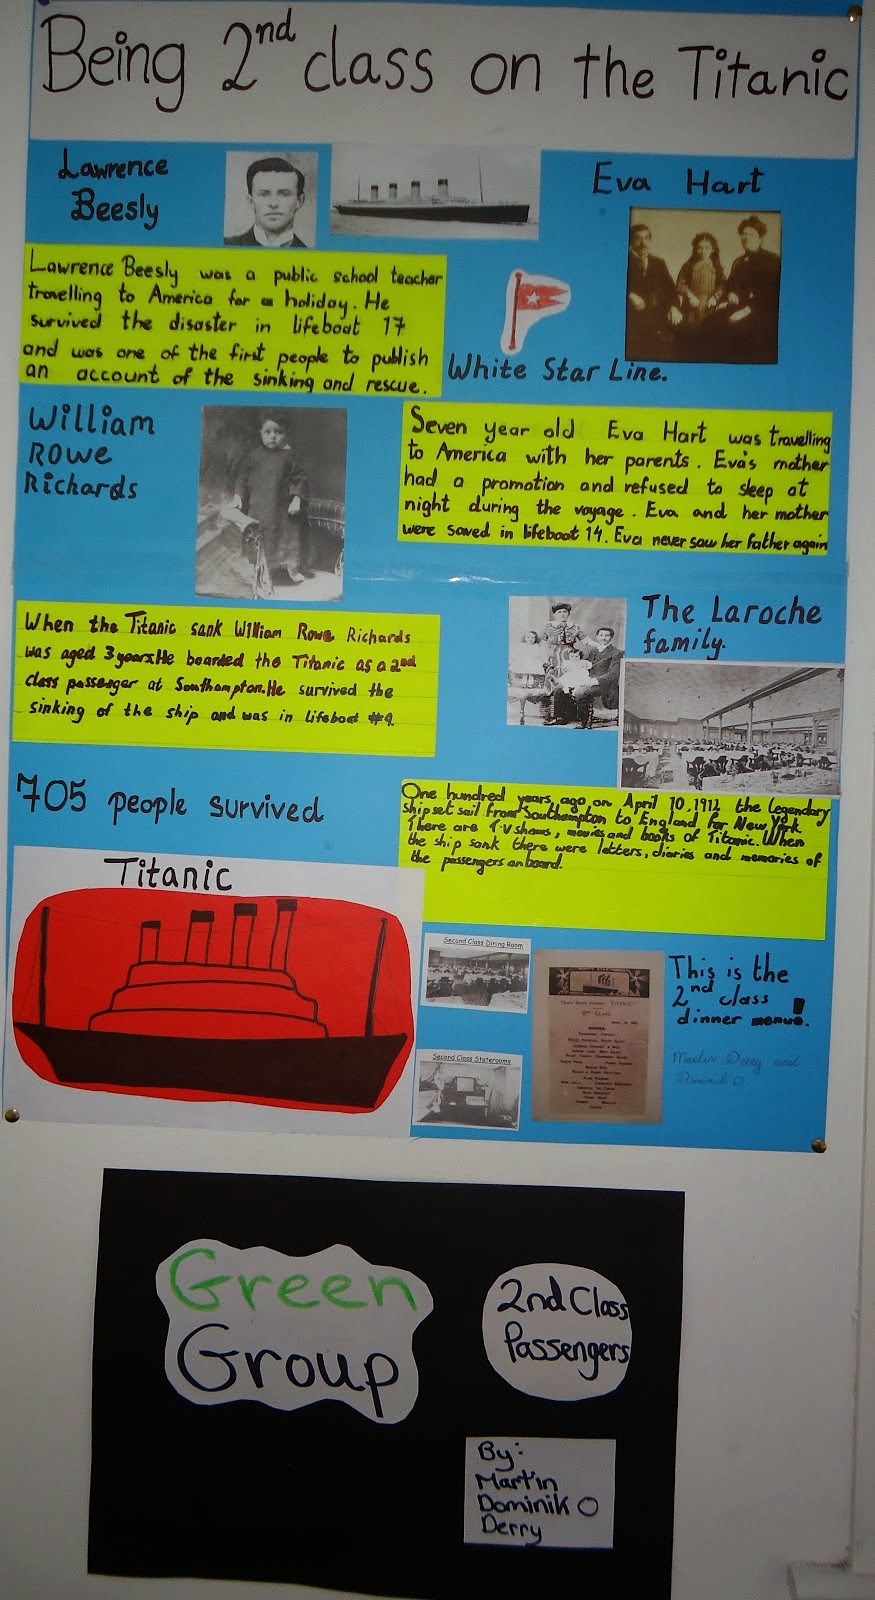 Being 2nd class on the Titanic
Lawrence
Beesly
Eva Hart
Lawrence Beesly was a public school teacher
travelling to America for a holiday. He
survived the disaster in lifeboat 17
and was one of the first people to publish
an account of the sinking and rescue.
White Star Line.
William
Rowe
Richards
Seven year old Eva Hart was travelling
to America with her parents. Eva's mother
had a promotion and refused to sleep at
night during the voyage. Eva and her mother
were saved in lifeboat 14. Eva never saw her father again
When the Titanic sank William Rowe Richards
was aged 3 years. He boarded the Titanic as a 2nd
class passenger at Southampton. He survived the
sinking of the ship and was in lifeboat #9.
The Laroche
family.
705 people survived
One hundred years ago on April 10, 1912 the legendary
ship set sail from Southampton to England for New York
There are T.V shows, movies and books of Titanic. When
the ship sank there were letters, diaries and memories of
the passengers on board.
Titanic
Second Class Dining Room
Second Class Staterooms
TITANIC
2ND CLASS
DINNER
This is the
2nd class
dinner menue!
Martin, Derry and
Dominik O
Green
Group
2nd Class
Passengers
By:
Martin
Dominik O
Derry